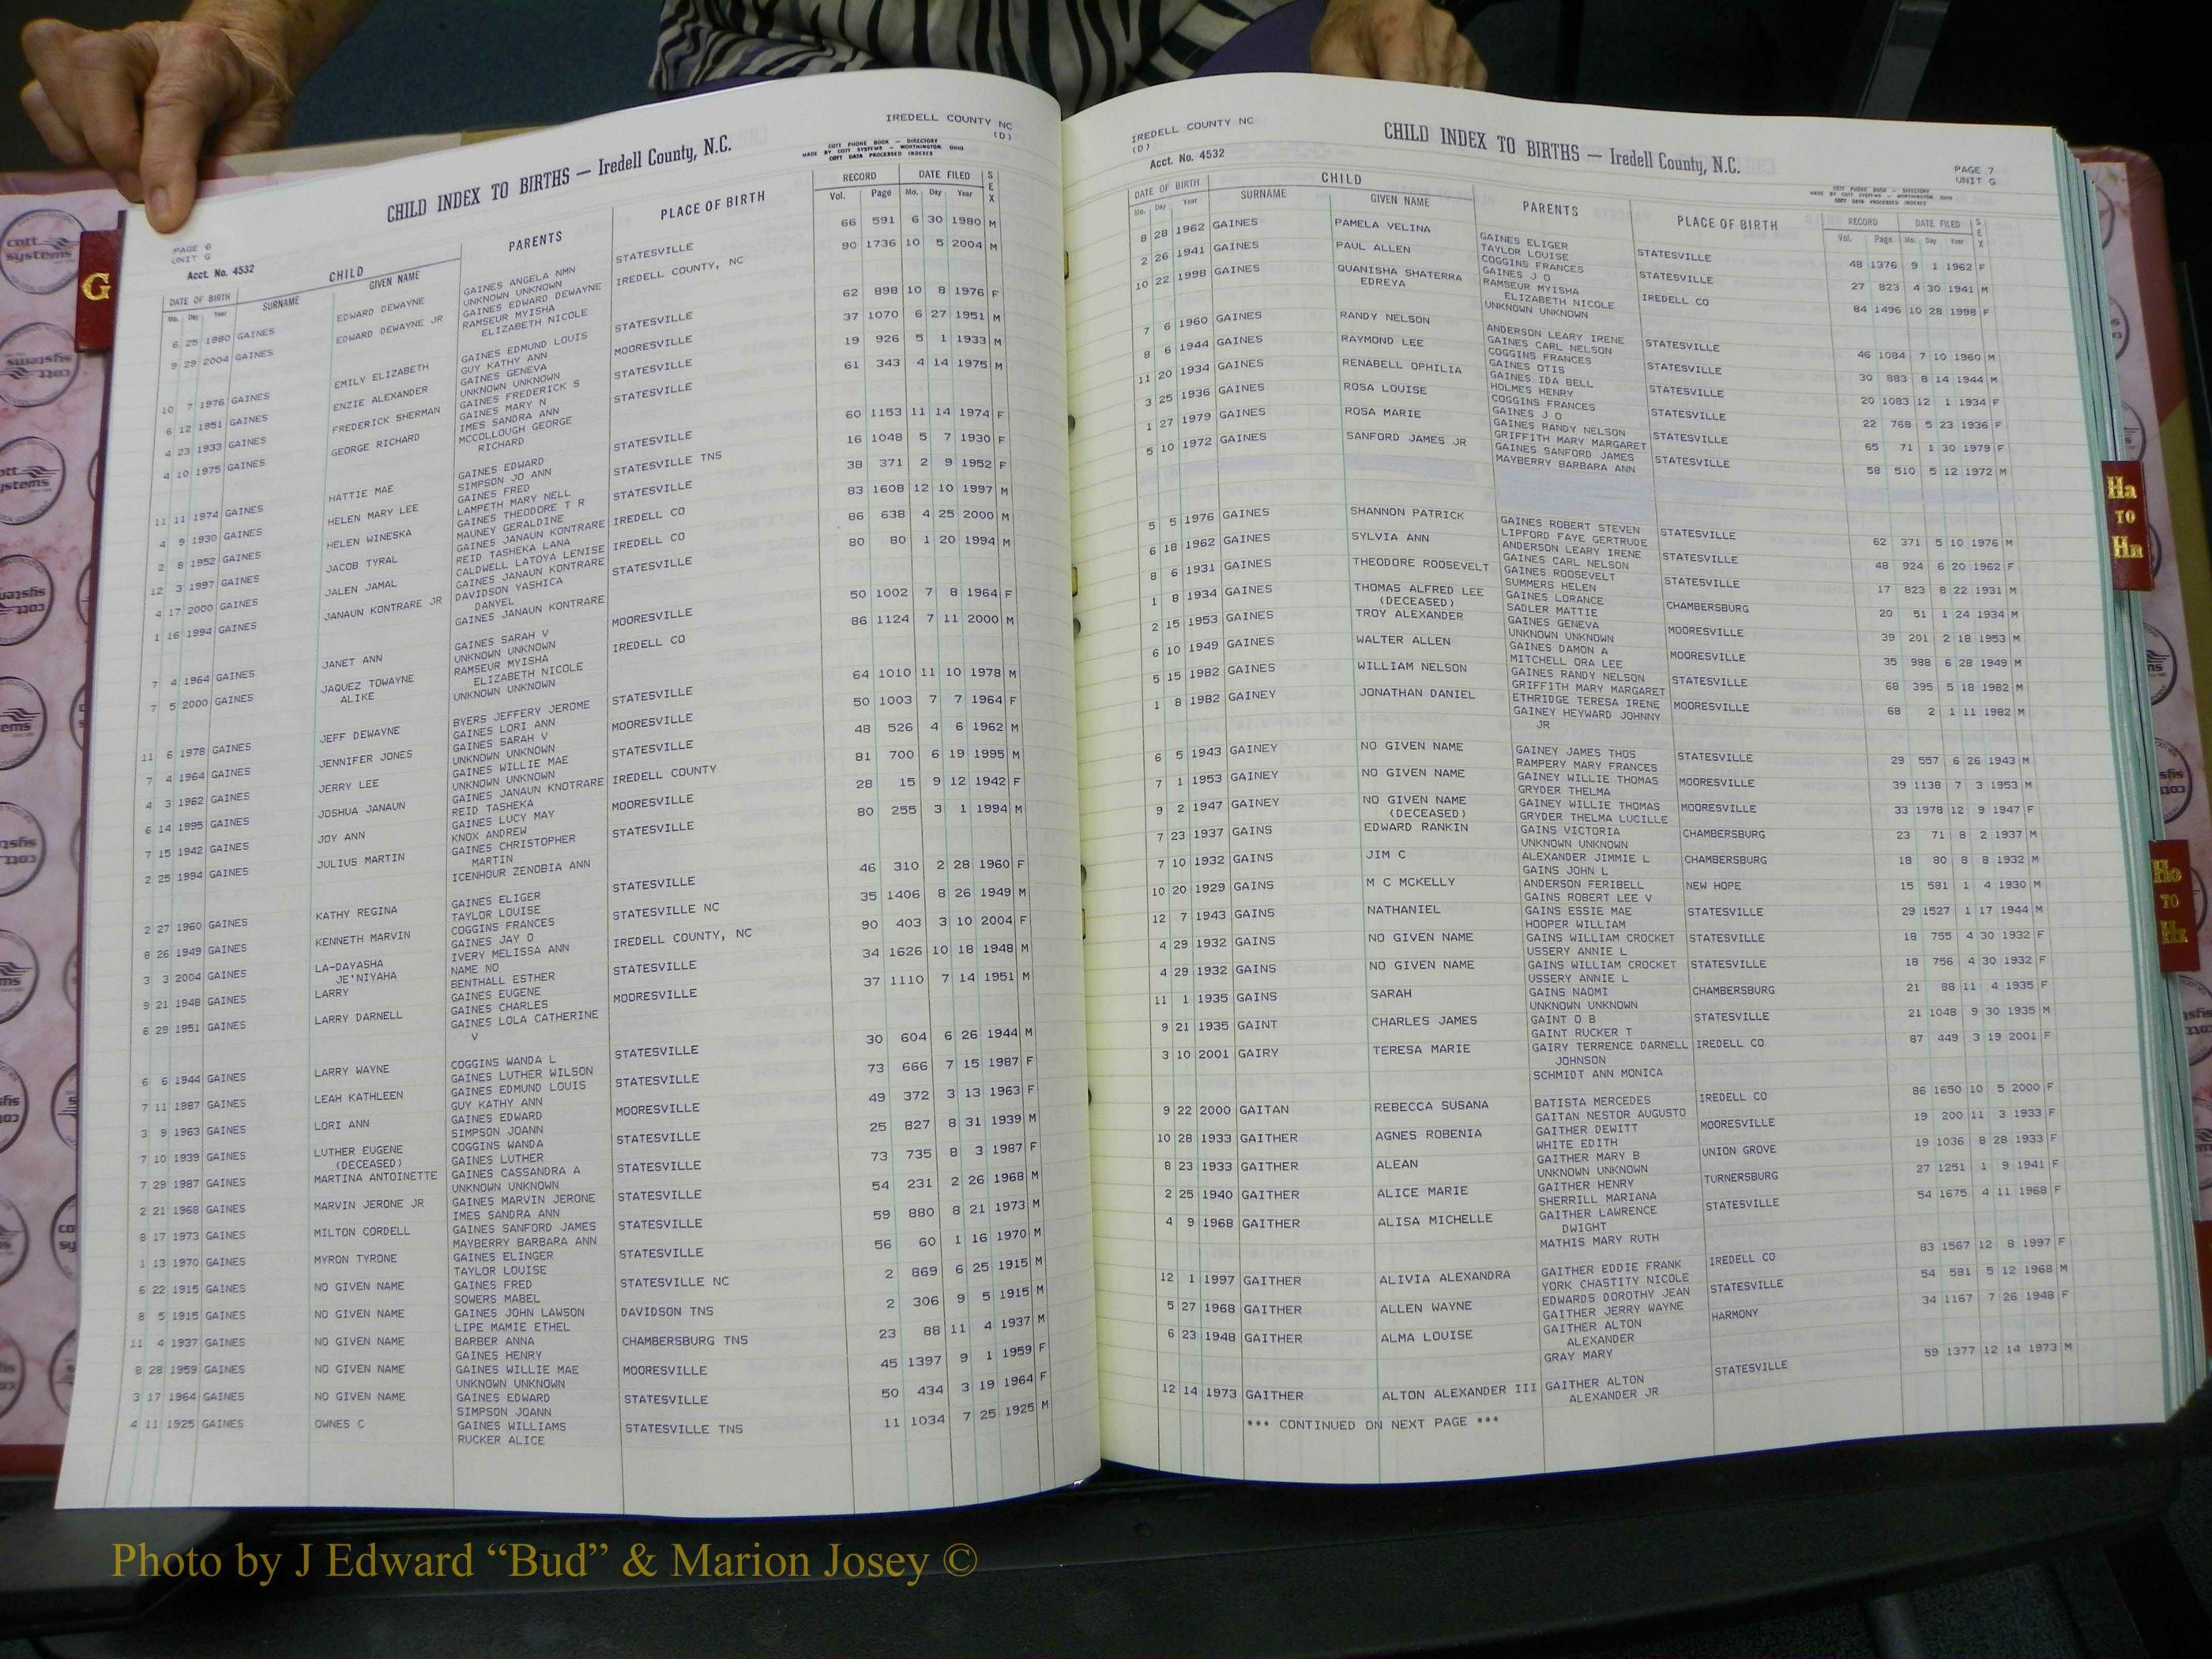 IREDELL COUNTY NC
(D)
CHILD INDEX TO BIRTHS — Iredell County, N.C.
COTT PHONE BOOK — DIRECTORY
MADE BY COTT SYSTEMS — WORTHINGTON, OHIO
COTT DATA PROCESSED INDEXES
PAGE 6
UNIT G
Acct. No. 4532
CHILD PARENTS PLACE OF BIRTH RECORD DATE FILED SEX
DATE OF BIRTH SURNAME GIVEN NAME
Mo. Day Year Vol. Page Mo. Day Year
6 25 1980 GAINES EDWARD DEWAYNE GAINES ANGELA NMN STATESVILLE 66 591 6 30 1980 M
UNKNOWN UNKNOWN
9 29 2004 GAINES EDWARD DEWAYNE JR GAINES EDWARD DEWAYNE IREDELL COUNTY, NC 90 1736 10 5 2004 M
RAMSEUR MYISHA
ELIZABETH NICOLE
10 7 1976 GAINES EMILY ELIZABETH GAINES EDMUND LOUIS STATESVILLE 62 898 10 8 1976 F
GUY KATHY ANN
6 12 1951 GAINES ENZIE ALEXANDER GAINES GENEVA MOORESVILLE 37 1070 6 27 1951 M
UNKNOWN UNKNOWN
4 23 1933 GAINES FREDERICK SHERMAN GAINES FREDERICK S STATESVILLE 19 926 5 1 1933 M
GAINES MARY N
4 10 1975 GAINES GEORGE RICHARD IMES SANDRA ANN STATESVILLE 61 343 4 14 1975 M
MCCOLLOUGH GEORGE
RICHARD
11 11 1974 GAINES HATTIE MAE GAINES EDWARD STATESVILLE 60 1153 11 14 1974 F
SIMPSON JO ANN
4 9 1930 GAINES HELEN MARY LEE GAINES FRED STATESVILLE TNS 16 1048 5 7 1930 F
LAMPETH MARY NELL
2 8 1952 GAINES HELEN WINESKA GAINES THEODORE T R STATESVILLE 38 371 2 9 1952 F
MAUNEY GERALDINE
12 3 1997 GAINES JACOB TYRAL GAINES JANAUN KONTRARE IREDELL CO 83 1608 12 10 1997 M
REID TASHEKA LANA
4 17 2000 GAINES JALEN JAMAL CALDWELL LATOYA LENISE IREDELL CO 86 638 4 25 2000 M
GAINES JANAUN KONTRARE
1 16 1994 GAINES JANAUN KONTRARE JR DAVIDSON YASHICA STATESVILLE 80 80 1 20 1994 M
DANYEL
GAINES JANAUN KONTRARE
7 4 1964 GAINES JANET ANN GAINES SARAH V MOORESVILLE 50 1002 7 8 1964 F
UNKNOWN UNKNOWN
7 5 2000 GAINES JAQUEZ TOWAYNE RAMSEUR MYISHA IREDELL CO 86 1124 7 11 2000 M
ALIKE ELIZABETH NICOLE
UNKNOWN UNKNOWN
11 6 1978 GAINES JEFF DEWAYNE BYERS JEFFERY JEROME STATESVILLE 64 1010 11 10 1978 M
GAINES LORI ANN
7 4 1964 GAINES JENNIFER JONES GAINES SARAH V MOORESVILLE 50 1003 7 7 1964 F
UNKNOWN UNKNOWN
4 3 1962 GAINES JERRY LEE GAINES WILLIE MAE STATESVILLE 48 526 4 6 1962 M
UNKNOWN UNKNOWN
6 14 1995 GAINES JOSHUA JANAUN GAINES JANAUN KNOTRARE IREDELL COUNTY 81 700 6 19 1995 M
REID TASHEKA
7 15 1942 GAINES JOY ANN GAINES LUCY MAY MOORESVILLE 28 15 9 12 1942 F
KNOX ANDREW
2 25 1994 GAINES JULIUS MARTIN GAINES CHRISTOPHER STATESVILLE 80 255 3 1 1994 M
MARTIN
ICENHOUR ZENOBIA ANN
2 27 1960 GAINES KATHY REGINA GAINES ELIGER STATESVILLE 46 310 2 28 1960 F
TAYLOR LOUISE
8 26 1949 GAINES KENNETH MARVIN COGGINS FRANCES STATESVILLE NC 35 1406 8 26 1949 M
GAINES JAY O
3 3 2004 GAINES LA-DAYASHA IVERY MELISSA ANN IREDELL COUNTY, NC 90 403 3 10 2004 F
JE'NIYAHA NAME NO
9 21 1948 GAINES LARRY BENTHALL ESTHER STATESVILLE 34 1626 10 18 1948 M
GAINES EUGENE
6 29 1951 GAINES LARRY DARNELL GAINES CHARLES MOORESVILLE 37 1110 7 14 1951 M
GAINES LOLA CATHERINE
V
6 6 1944 GAINES LARRY WAYNE COGGINS WANDA L STATESVILLE 30 604 6 26 1944 M
GAINES LUTHER WILSON
7 11 1987 GAINES LEAH KATHLEEN GAINES EDMUND LOUIS STATESVILLE 73 666 7 15 1987 F
GUY KATHY ANN
3 9 1963 GAINES LORI ANN GAINES EDWARD MOORESVILLE 49 372 3 13 1963 F
SIMPSON JOANN
7 10 1939 GAINES LUTHER EUGENE COGGINS WANDA STATESVILLE 25 827 8 31 1939 M
(DECEASED) GAINES LUTHER
7 29 1987 GAINES MARTINA ANTOINETTE GAINES CASSANDRA A STATESVILLE 73 735 8 3 1987 F
UNKNOWN UNKNOWN
2 21 1968 GAINES MARVIN JERONE JR GAINES MARVIN JERONE STATESVILLE 54 231 2 26 1968 M
IMES SANDRA ANN
8 17 1973 GAINES MILTON CORDELL GAINES SANFORD JAMES STATESVILLE 59 880 8 21 1973 M
MAYBERRY BARBARA ANN
1 13 1970 GAINES MYRON TYRONE GAINES ELINGER STATESVILLE 56 60 1 16 1970 M
TAYLOR LOUISE
6 22 1915 GAINES NO GIVEN NAME GAINES FRED STATESVILLE NC 2 869 6 25 1915 M
SOWERS MABEL
8 5 1915 GAINES NO GIVEN NAME GAINES JOHN LAWSON DAVIDSON TNS 2 306 9 5 1915 M
LIPE MAMIE ETHEL
11 4 1937 GAINES NO GIVEN NAME BARBER ANNA CHAMBERSBURG TNS 23 88 11 4 1937 M
GAINES HENRY
8 28 1959 GAINES NO GIVEN NAME GAINES WILLIE MAE MOORESVILLE 45 1397 9 1 1959 F
UNKNOWN UNKNOWN
3 17 1964 GAINES NO GIVEN NAME GAINES EDWARD STATESVILLE 50 434 3 19 1964 F
SIMPSON JOANN
4 11 1925 GAINES OWNES C GAINES WILLIAMS STATESVILLE TNS 11 1034 7 25 1925 M
RUCKER ALICE
IREDELL COUNTY NC
(D)
CHILD INDEX TO BIRTHS — Iredell County, N.C.
Acct. No. 4532
PAGE 7
UNIT G
MADE BY COTT SYSTEMS — WORTHINGTON, OHIO
COTT DATA PROCESSED INDEXES
DATE OF BIRTH CHILD PARENTS PLACE OF BIRTH RECORD DATE FILED SEX
Mo. Day Year SURNAME GIVEN NAME Vol. Page Mo. Day Year
8 28 1962 GAINES PAMELA VELINA GAINES ELIGER STATESVILLE 48 1376 9 1 1962 F
TAYLOR LOUISE
2 26 1941 GAINES PAUL ALLEN COGGINS FRANCES STATESVILLE 27 823 4 30 1941 M
GAINES J O
10 22 1998 GAINES QUANISHA SHATERRA RAMSEUR MYISHA IREDELL CO 84 1496 10 28 1998 F
EDREYA ELIZABETH NICOLE
UNKNOWN UNKNOWN
7 6 1960 GAINES RANDY NELSON ANDERSON LEARY IRENE STATESVILLE 46 1084 7 10 1960 M
GAINES CARL NELSON
8 6 1944 GAINES RAYMOND LEE COGGINS FRANCES STATESVILLE 30 883 8 14 1944 M
GAINES OTIS
11 20 1934 GAINES RENABELL OPHILIA GAINES IDA BELL STATESVILLE 20 1083 12 1 1934 F
HOLMES HENRY
3 25 1936 GAINES ROSA LOUISE COGGINS FRANCES STATESVILLE 22 768 5 23 1936 F
GAINES J O
1 27 1979 GAINES ROSA MARIE GAINES RANDY NELSON STATESVILLE 65 71 1 30 1979 F
GRIFFITH MARY MARGARET
5 10 1972 GAINES SANFORD JAMES JR GAINES SANFORD JAMES STATESVILLE 58 510 5 12 1972 M
MAYBERRY BARBARA ANN
5 5 1976 GAINES SHANNON PATRICK GAINES ROBERT STEVEN STATESVILLE 62 371 5 10 1976 M
LIPFORD FAYE GERTRUDE
6 18 1962 GAINES SYLVIA ANN ANDERSON LEARY IRENE STATESVILLE 48 924 6 20 1962 F
GAINES CARL NELSON
8 6 1931 GAINES THEODORE ROOSEVELT GAINES ROOSEVELT STATESVILLE 17 823 8 22 1931 M
SUMMERS HELEN
1 8 1934 GAINES THOMAS ALFRED LEE GAINES LORANCE CHAMBERSBURG 20 51 1 24 1934 M
(DECEASED) SADLER MATTIE
2 15 1953 GAINES TROY ALEXANDER GAINES GENEVA MOORESVILLE 39 201 2 18 1953 M
UNKNOWN UNKNOWN
6 10 1949 GAINES WALTER ALLEN GAINES DAMON A MOORESVILLE 35 988 6 28 1949 M
MITCHELL ORA LEE
5 15 1982 GAINES WILLIAM NELSON GAINES RANDY NELSON STATESVILLE 68 395 5 18 1982 M
GRIFFITH MARY MARGARET
1 8 1982 GAINEY JONATHAN DANIEL ETHRIDGE TERESA IRENE MOORESVILLE 68 2 1 11 1982 M
GAINEY HEYWARD JOHNNY
JR
6 5 1943 GAINEY NO GIVEN NAME GAINEY JAMES THOS STATESVILLE 29 557 6 26 1943 M
RAMPERY MARY FRANCES
7 1 1953 GAINEY NO GIVEN NAME GAINEY WILLIE THOMAS MOORESVILLE 39 1138 7 3 1953 M
GRYDER THELMA
9 2 1947 GAINEY NO GIVEN NAME GAINEY WILLIE THOMAS MOORESVILLE 33 1978 12 9 1947 F
(DECEASED) GRYDER THELMA LUCILLE
7 23 1937 GAINS EDWARD RANKIN GAINS VICTORIA CHAMBERSBURG 23 71 8 2 1937 M
UNKNOWN UNKNOWN
7 10 1932 GAINS JIM C ALEXANDER JIMMIE L CHAMBERSBURG 18 80 8 8 1932 M
GAINS JOHN L
10 20 1929 GAINS M C MCKELLY ANDERSON FERIBELL NEW HOPE 15 581 1 4 1930 M
GAINS ROBERT LEE V
12 7 1943 GAINS NATHANIEL GAINS ESSIE MAE STATESVILLE 29 1527 1 17 1944 M
HOOPER WILLIAM
4 29 1932 GAINS NO GIVEN NAME GAINS WILLIAM CROCKET STATESVILLE 18 755 4 30 1932 F
USSERY ANNIE L
4 29 1932 GAINS NO GIVEN NAME GAINS WILLIAM CROCKET STATESVILLE 18 756 4 30 1932 F
USSERY ANNIE L
11 1 1935 GAINS SARAH GAINS NAOMI CHAMBERSBURG 21 88 11 4 1935 F
UNKNOWN UNKNOWN
9 21 1935 GAINT CHARLES JAMES GAINT O B STATESVILLE 21 1048 9 30 1935 M
GAINT RUCKER T
3 10 2001 GAIRY TERESA MARIE GAIRY TERRENCE DARNELL IREDELL CO 87 449 3 19 2001 F
JOHNSON
SCHMIDT ANN MONICA
9 22 2000 GAITAN REBECCA SUSANA BATISTA MERCEDES IREDELL CO 86 1650 10 5 2000 F
GAITAN NESTOR AUGUSTO
10 28 1933 GAITHER AGNES ROBENIA GAITHER DEWITT MOORESVILLE 19 200 11 3 1933 F
WHITE EDITH
8 23 1933 GAITHER ALEAN GAITHER MARY B UNION GROVE 19 1036 8 28 1933 F
UNKNOWN UNKNOWN
2 25 1940 GAITHER ALICE MARIE GAITHER HENRY TURNERSBURG 27 1251 1 9 1941 F
SHERRILL MARIANA
4 9 1968 GAITHER ALISA MICHELLE GAITHER LAWRENCE STATESVILLE 54 1675 4 11 1968 F
DWIGHT
MATHIS MARY RUTH
12 1 1997 GAITHER ALIVIA ALEXANDRA GAITHER EDDIE FRANK IREDELL CO 83 1567 12 8 1997 F
YORK CHASTITY NICOLE
5 27 1968 GAITHER ALLEN WAYNE EDWARDS DOROTHY JEAN STATESVILLE 54 581 5 12 1968 M
GAITHER JERRY WAYNE
6 23 1948 GAITHER ALMA LOUISE GAITHER ALTON HARMONY 34 1167 7 26 1948 F
ALEXANDER
GRAY MARY
12 14 1973 GAITHER ALTON ALEXANDER III GAITHER ALTON STATESVILLE 59 1377 12 14 1973 M
ALEXANDER JR
*** CONTINUED ON NEXT PAGE ***
G
Ha
TO
Hn
Ho
TO
Hz
cott
systems
Photo by J Edward “Bud” & Marion Josey ©